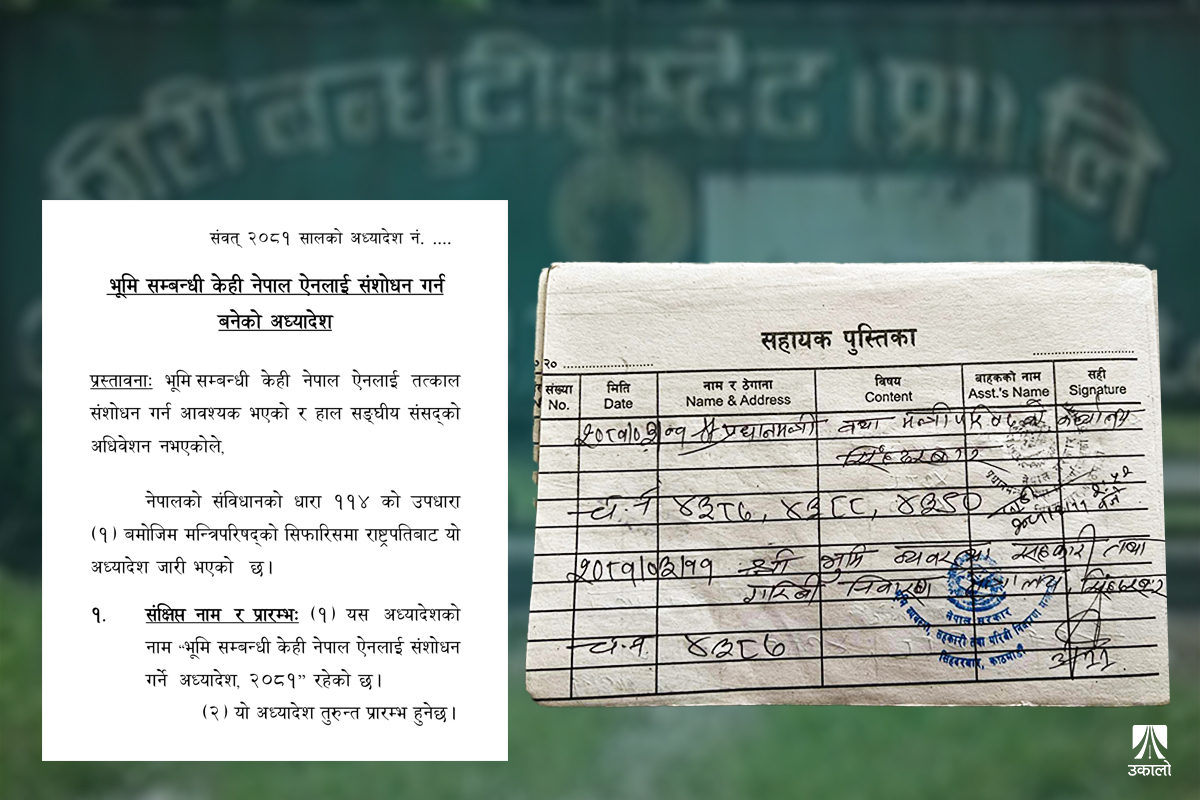 गिरी बन्धु टी इस्टेट (प्रा) लि
संवत् २०८१ सालको अध्यादेश नं. ....
भूमि सम्बन्धी केही नेपाल ऐनलाई संशोधन गर्न
बनेको अध्यादेश
प्रस्तावनाः भूमि सम्बन्धी केही नेपाल ऐनलाई तत्काल
संशोधन गर्न आवश्यक भएको र हाल सङ्घीय संसद्को
अधिवेशन नभएकोले,
नेपालको संविधानको धारा ११४ को उपधारा
(१) बमोजिम मन्त्रिपरिषद्को सिफारिसमा राष्ट्रपतिबाट यो
अध्यादेश जारी भएको छ।
१. संक्षिप्त नाम र प्रारम्भः (१) यस अध्यादेशको
नाम “भूमि सम्बन्धी केही नेपाल ऐनलाई संशोधन
गर्ने अध्यादेश, २०८१” रहेको छ।
(२) यो अध्यादेश तुरुन्त प्रारम्भ हुनेछ।
सहायक पुस्तिका
संख्या मिति नाम र ठेगाना विषय बाहकको नाम सही
No. Date Name & Address Content Asst.'s Name Signature
२०८१/०३/११ प्रधानमन्त्री तथा मन्त्रीपरिषदको कार्यालय
सिंहदरबार
च.नं ४३८७, ४३८८, ४३९०
२०८१/०३/११ श्री भूमि व्यवस्था सहकारी तथा
गरिबी निवारण मन्त्रालय, सिंहदरबार
नेपाल सरकार
भूमि व्यवस्था, सहकारी तथा गरिबी निवारण मन्त्रालय
सिंहदरबार, काठमाडौं
च.नं. ४३८७
उकालो